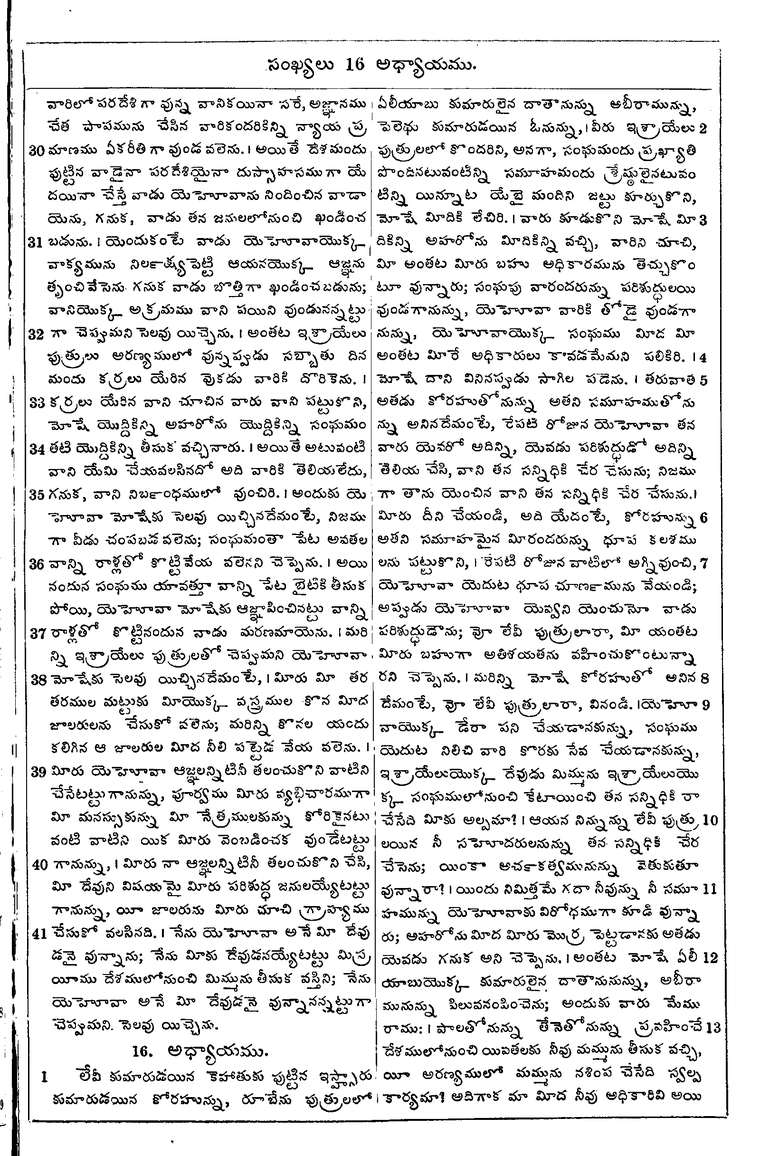 సంఖ్యలు 16 అధ్యాయము.
వారిలో పరదేశి గా వున్న వానికయినా సరే, అజ్ఞానము
చేత పాపమును చేసిన వారికందరికిన్ని న్యాయ ప్ర
30 మాణము ఏకరీతిగా వుండ వలెను. । అయితే దేశమందు
పుట్టిన వాడైనా పరదేశియైనా దుస్సాహసముగా యే
దయినా చేస్తే వాడు యెహోవాను నిందించిన వాడా
యెను, గనుక, వాడు తన జనులలోనుంచి ఖండించ
31 బడును. । యెందుకంటే వాడు యెహోవాయొక్క
వాక్యమును నిలఁక్ష్యపెట్టి ఆయనయొక్క ఆజ్ఞను
తృంచివేసెను గనుక వాడు బొత్తిగా ఖండించబడును;
వానియొక్క అక్రమము వాని పయిని వుండునన్నట్టు
32 గా చెప్పుమని సెలవు యిచ్చెను. । అంతట ఇశ్రాయేలు
పుత్రులు అరణ్యములో వున్నప్పుడు సబ్బాతు దిన
మందు కర్రలు యేరిన వొకడు వారికి దొరికెను. ।
33 కర్రలు యేరిన వాని చూచిన వారు వాని పట్టుకొని,
మోషే యొద్దికిన్ని అహరోను యొద్దికిన్ని సంఘము
34 తటి యొద్దికిన్ని తీసుక వచ్చినారు. । అయితే అటువంటి
వాని యేమి చేయవలసినదో అది వారికి తెలియలేదు,
35 గనుక, వాని నిబఁంధములో వుంచిరి. । అందుకు యె
హోవా మోషేకు సెలవు యిచ్చినదేమంటే, నిజము
గా వీడు చంపబడ వలెను; సంఘమంతా పేట అవతల
36 వాన్ని రాళ్లతో కొట్టివేయ వలెనని చెప్పెను. । అయి
నందున సంఘము యావత్తూ వాన్ని పేట బైటికి తీసుక
పోయి, యెహోవా మోషేకు ఆజ్ఞాపించినట్టు వాన్ని
37 రాళ్లతో కొట్టినందున వాడు మరణమాయెను. । మరి
న్ని ఇశ్రాయేలు పుత్రులతో చెప్పుమని యెహోవా
38 మోషేకు సెలవు యిచ్చినదేమంటే, । మీరు మీ తర
తరముల మట్టుకు మీయొక్క వస్త్రముల కొన మీద
జాలరులను చేసుకో వలెను; మరిన్ని కొనల యందు
కలిగిన ఆ జాలరుల మీద నీలి పట్టెడ వేయ వలెను. ।
39 మీరు యెహోవా ఆజ్ఞలన్నిటినీ తలంచుకొని వాటిని
చేసేటట్టుగానున్ను, పూర్వము మీరు వ్యభిచారముగా
మీ మనస్సుకున్ను మీ నేత్రములకున్ను కోరికైనటు
వంటి వాటిని యిక మీరు వెంబడించక వుండేటట్టు
40 గానున్ను, । మీరు నా ఆజ్ఞలన్నిటినీ తలంచుకొని చేసి,
మీ దేవుని విషయమై మీరు పరిశుద్ధ జనులయ్యేటట్టు
గానున్ను, యీ జాలరును మీరు చూచి గ్రాహ్యము
41 చేసుకో వలసినది. । నేను యెహోవా అనే మీ దేవు
డనై వున్నాను; నేను మీకు దేవుడనయ్యేటట్టు మిస్ర
యీము దేశములోనుంచి మిమ్మును తీసుక వస్తిని; నేను
యెహోవా అనే మీ దేవుడనై వున్నానన్నట్టుగా
చెప్పుమని సెలవు యిచ్చెను.
16. అధ్యాయము.
1 లేవీ కుమారుడయిన కెహాతుకు పుట్టిన ఇస్హారు
కుమారుడయిన కోరహున్ను, రూబేను పుత్రులలో
ఏలీయాబు కుమారులైన దాతానున్ను అబీరామున్ను,
పెలెథు కుమారుడయిన ఓనున్ను, । వీరు ఇశ్రాయేలు 2
పుత్రులలో కొందరిని, అనగా, సంఘమందు ప్రఖ్యాతి
పొందినటువంటిన్ని సమూహమందు శ్రేష్ఠులైనటువం
టిన్ని యిన్నూట యేబై మందిని జట్టు కూర్చుకొని,
మోషే మీదికి లేచిరి. । వారు కూడుకొని మోషే మీ 3
దికిన్ని అహరోను మీదికిన్ని వచ్చి, వారిని చూచి,
మీ అంతట మీరు బహు అధికారమును తెచ్చుకొం
టూ వున్నారు; సంఘపు వారందరున్ను పరిశుద్ధులయి
వుండగానున్ను, యెహోవా వారికి తోడై వుండగా
నున్ను, యెహోవాయొక్క సంఘము మీద మీ
అంతట మీరే అధికారులు కావడమేమని పలికిరి. । 4
మోషే దాని వినినప్పుడు సాగిల పడెను. । తరువాత 5
అతడు కోరహుతోనున్ను అతని సమూహముతోను
న్ను అనినదేమంటే, రేపటి రోజున యెహోవా తన
వారు యెవరో అదిన్ని, యెవడు పరిశుద్ధుడో అదిన్ని
తెలియ చేసి, వాని తన సన్నిధికి చేర చేసును; నిజము
గా తాను యెంచిన వాని తన సన్నిధికి చేర చేసును. ।
మీరు దీని చేయండి, అది యేదంటే, కోరహున్ను 6
అతని సమూహమైన మీరందరున్ను ధూప కలశము
లను పట్టుకొని, । రేపటి రోజున వాటిలో అగ్నివుంచి, 7
యెహోవా యెదుట ధూప చూణఁమును వేయండి;
అప్పుడు యెహోవా యెవ్వని యెంచునో వాడు
పరిశుద్ధుడౌను; వో లేవీ పుత్రులారా, మీ యంతట
మీరు బహుగా అతిశయతను వహించుకొంటున్నా
రని చెప్పెను. । మరిన్ని మోషే కోరహుతో అనిన 8
దేమంటే, వో లేవీ పుత్రులారా, వినండి. । యెహో 9
వాయొక్క డేరా పని చేయడానకున్ను, సంఘము
యెదుట నిలిచి వారి కొరకు సేవ చేయడానకున్ను,
ఇశ్రాయేలుయొక్క దేవుడు మిమ్మును ఇశ్రాయేలుయొ
క్క సంఘములోనుంచి కేటాయించి తన సన్నిధికి రా
చేసేది మీకు అల్పమా? । ఆయన నిన్నున్ను లేవీ పుత్రు 10
లయిన నీ సహోదరులనున్ను తన సన్నిధికి చేర
చేసెను; యింకా అచఁకత్వమునున్ను వెతుకుతూ
వున్నారా? । యిందు నిమిత్తమే గదా నీవున్ను నీ సమూ 11
హమున్ను యెహోవాకు విరోధముగా కూడి వున్నా
రు; అహరోను మీద మీరు మొర్ర పెట్టడానకు అతడు
యెవడు గనుక అని చెప్పెను. । అంతట మోషే ఏలీ 12
యాబుయొక్క కుమారులైన దాతానునున్ను, అబీరా
మునున్ను పిలువనంపించెను; అందుకు వారు మేము
రాము: । పాలతోనున్ను తేనెతోనున్ను ప్రవహించే 13
దేశములోనుంచి యివతలకు నీవు మమ్మును తీసుక వచ్చి,
యీ అరణ్యములో మమ్మును నశింప చేసేది స్వల్ప
కార్యమా? అదిగాక మా మీద నీవు అధికారివి అయి